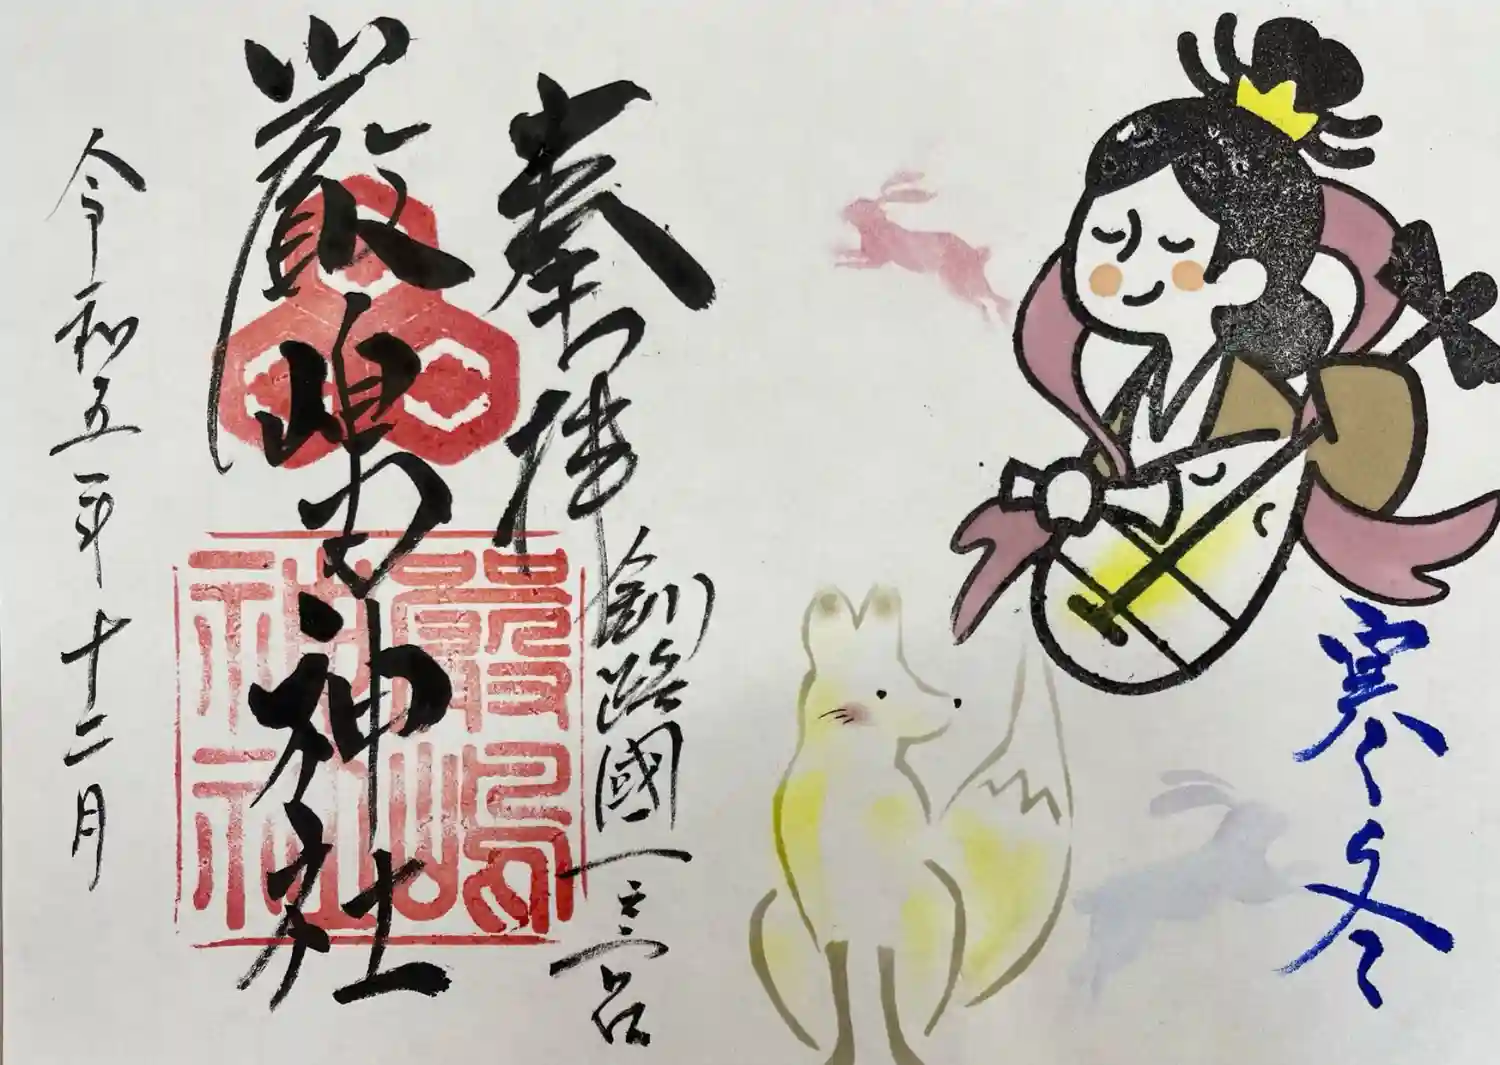 寒冬
奉拝
釧路國一之宮
厳嶋神社
嚴嶋神社
令和五年十二月